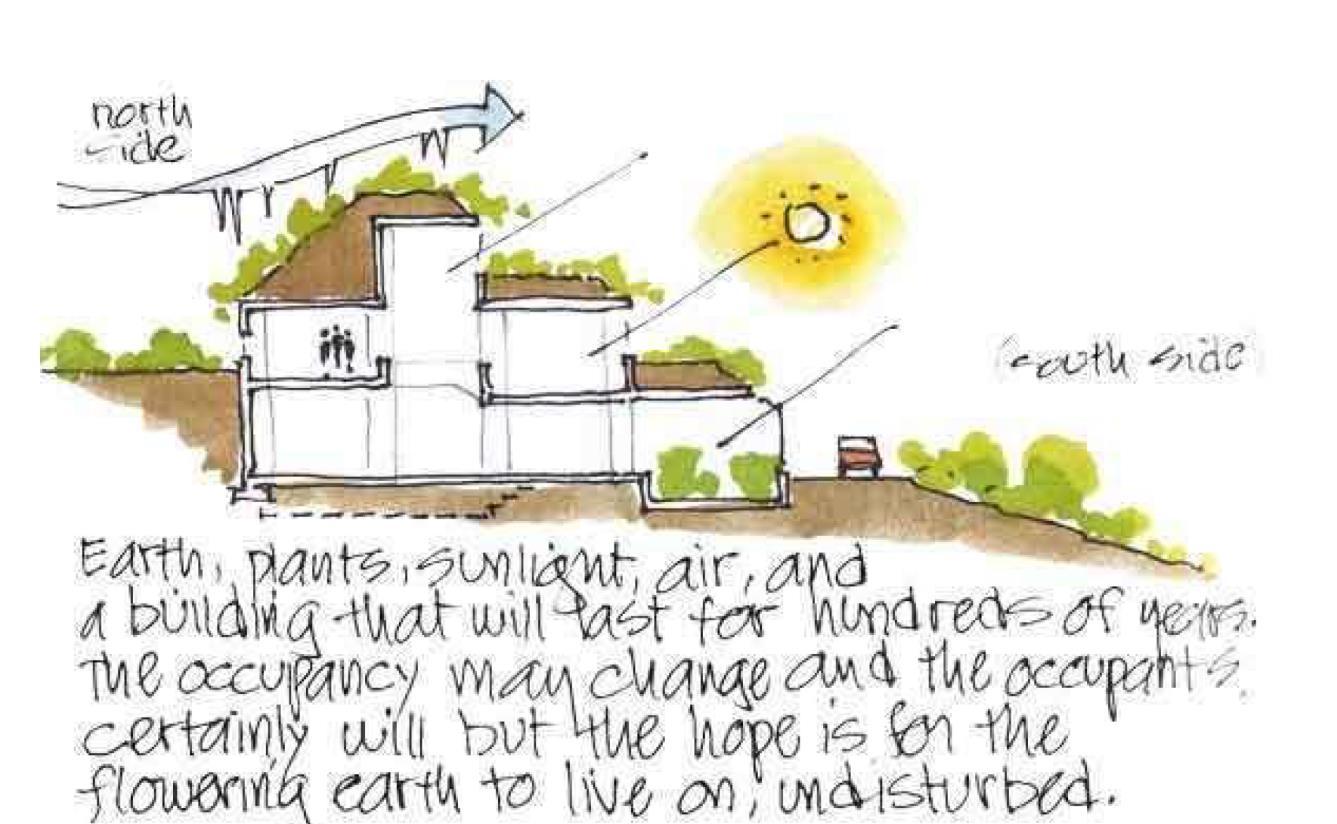 north
side
south side
Earth, plants, sunlight, air, and
a building that will last for hundreds of years.
The occupancy may change and the occupants
certainly will but the hope is for the
flowering earth to live on, undisturbed.